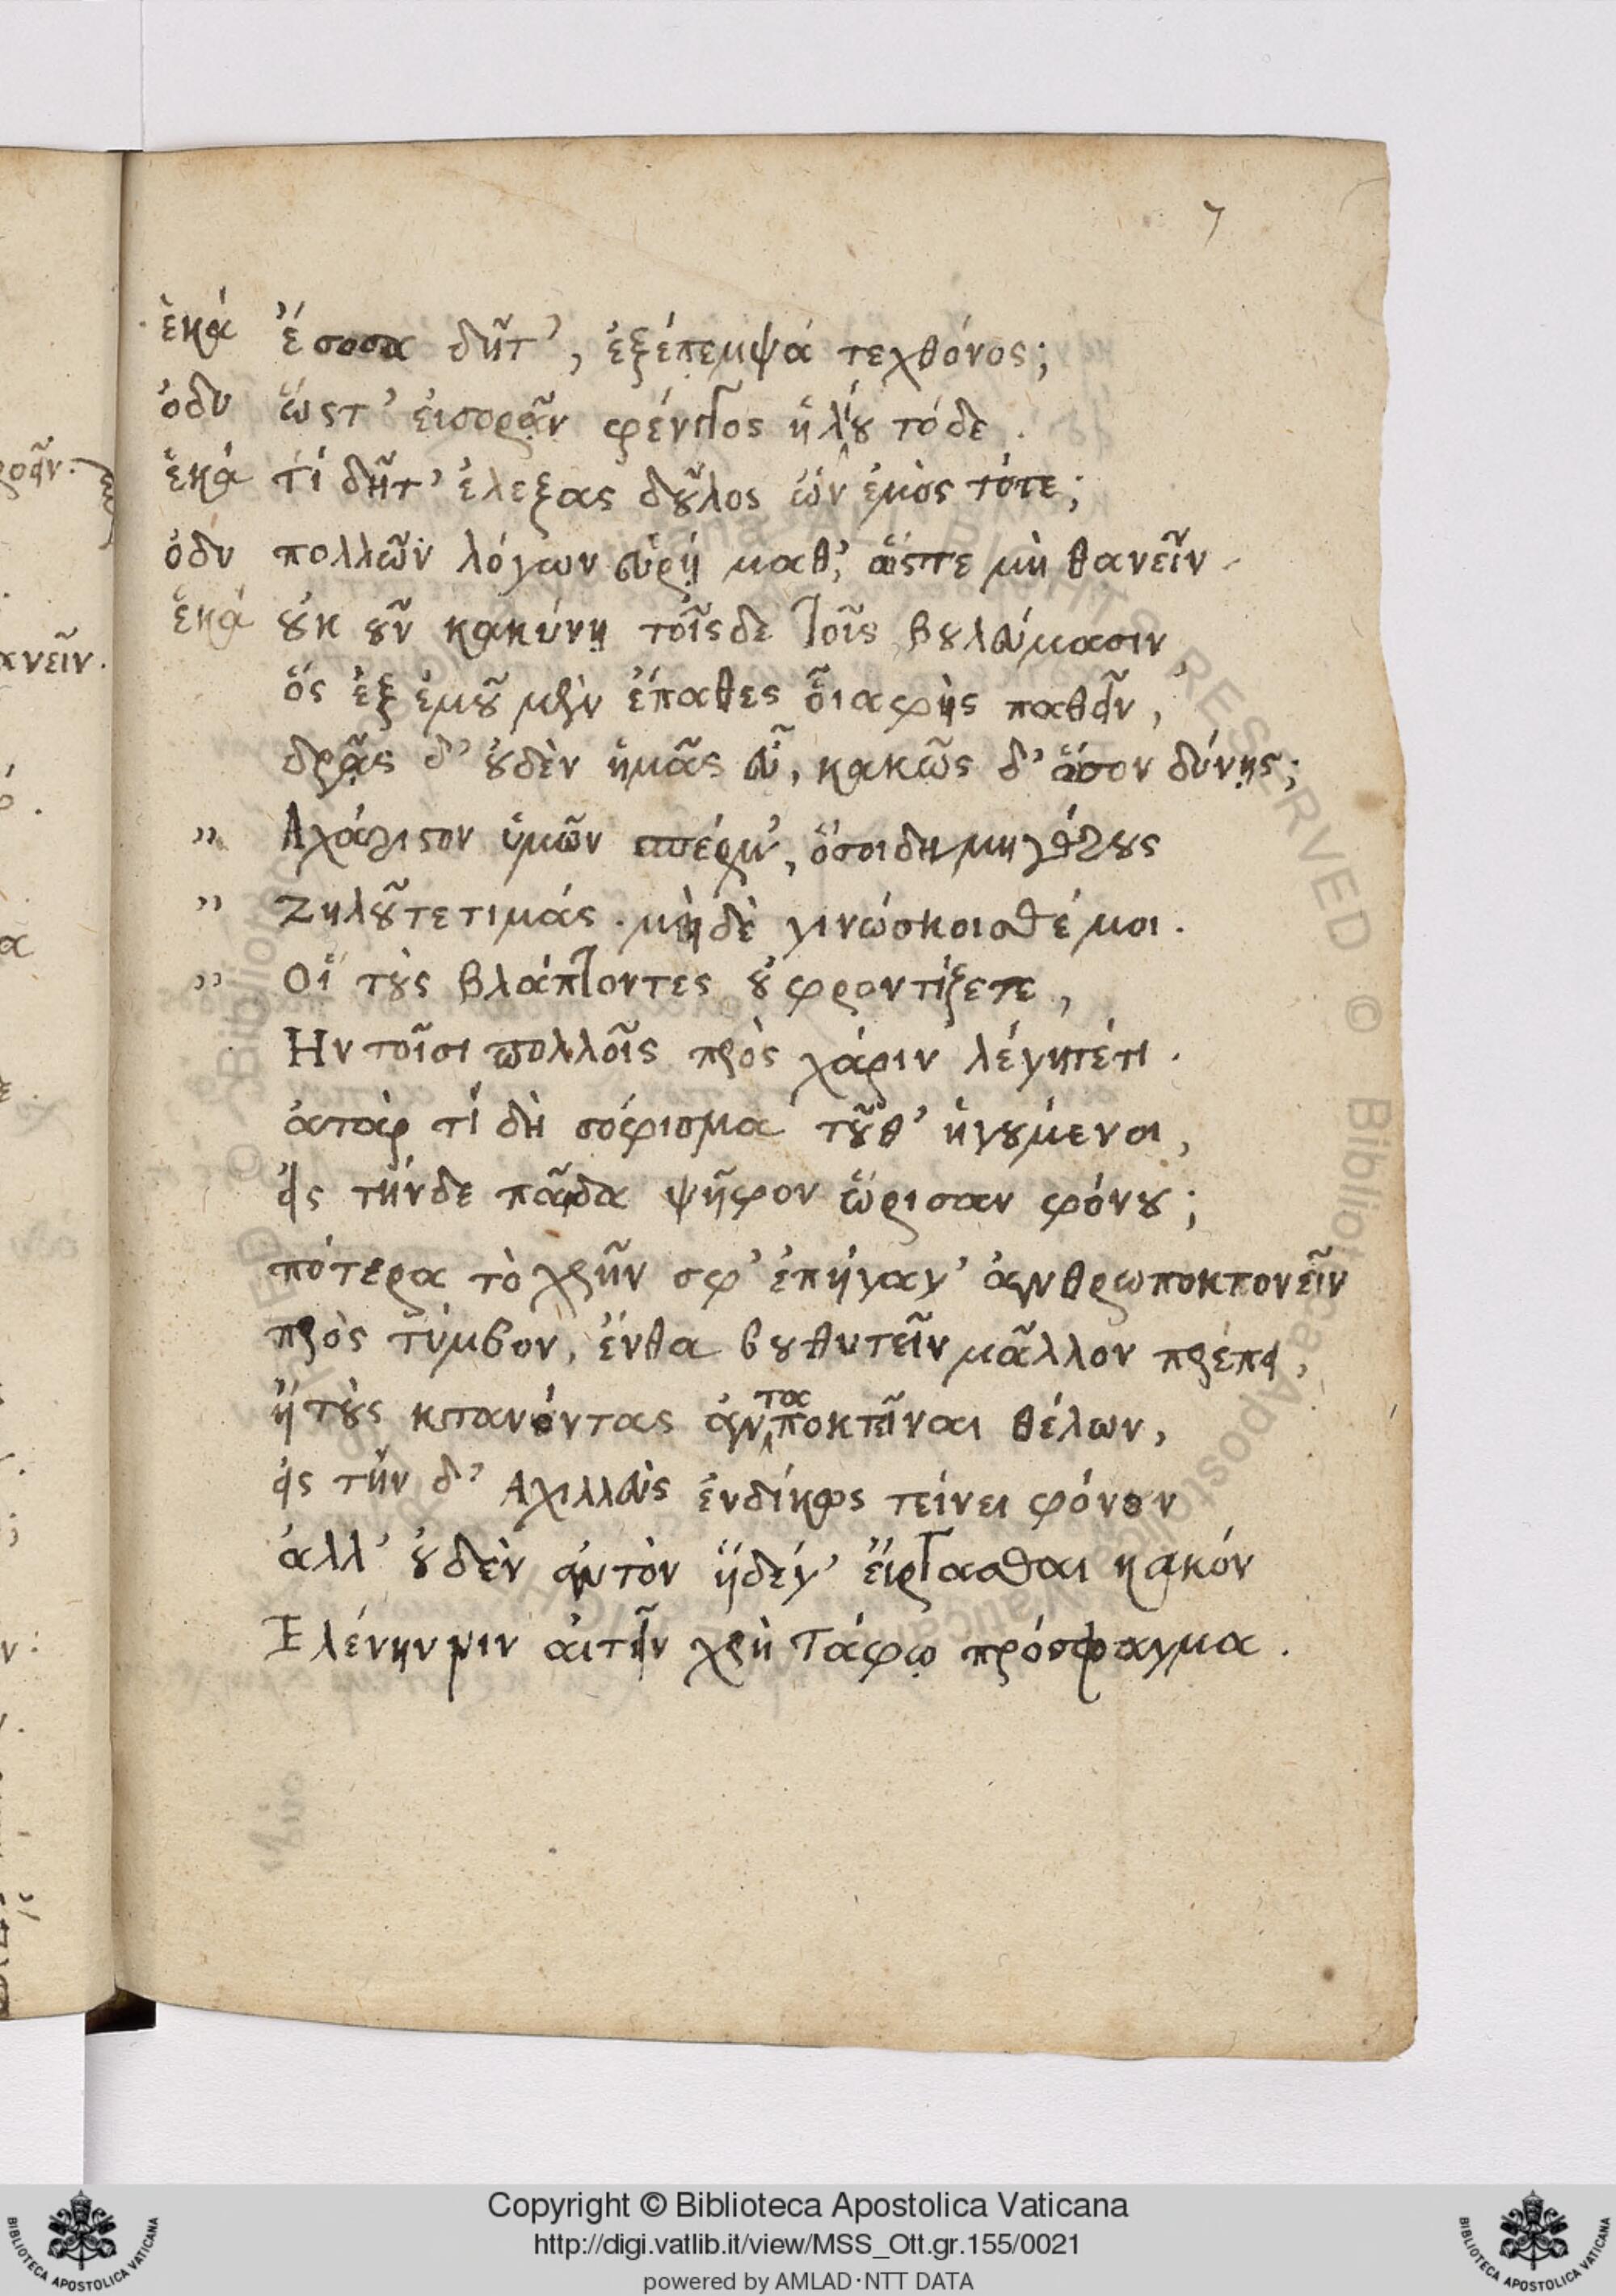 7
ἑκά ἔσοσα δῆτ', ἐξέπεμψά τεχθόνος;
ὀδυ ὥστ' εἰσορᾶν φέγγος ἡλίου τόδε.
ἑκά τί δῆτ' ἔλεξας δοῦλος ὢν ἐμὸς τότε;
ὀδυ πολλῶν λόγων εὑρήμαθ', ὥστε μὴ θανεῖν.
ἑκά οὔκουν κακύνῃ τοῖσδε τοῖς βουλεύμασιν
ὃς ἐξ ἐμοῦ μὲν ἔπαθες οἷα φῂς παθεῖν,
δρᾷς δ' οὐδὲν ἡμᾶς εὖ, κακῶς δ' ὅσον δύνῃς;
" Ἀχάριστον ὑμῶν σπέρμ', ὅσοι δημηγόρους
" Ζηλοῦτε τιμάς. μηδὲ γινώσκοισθέ μοι.
" Οἳ τοὺς βλάπτοντες οὐ φροντίζετε,
Ἢν τοῖσι πολλοῖς πρὸς χάριν λέγητέ τι.
ἀτὰρ τί δὴ σόφισμα τοῦθ' ἡγούμενοι,
εἰς τήνδε παῖδα ψῆφον ὥρισαν φόνου;
πότερα τὸ χρῆν σφ' ἐπήγαγ' ἀνθρωποκτονεῖν
πρὸς τύμβον, ἔνθα βουθυτεῖν μᾶλλον πρέπει,
ἢ τοὺς κτανόντας ἀνταποκτεῖναι θέλων,
εἰς τήν δ' Ἀχιλλεὺς ἐνδίκως τείνει φόνον
ἀλλ' οὐδὲν αὐτὸν ἥδε γ' εἴργασθαι κακόν
Ἑλένην νιν αἰτεῖν χρὴ τάφῳ πρόσφαγμα.
Copyright © Biblioteca Apostolica Vaticana
http://digi.vatlib.it/view/MSS_Ott.gr.155/0021
powered by AMLAD·NTT DATA
BIBLIOTECA APOSTOLICA VATICANA
BIBLIOTECA APOSTOLICA VATICANA